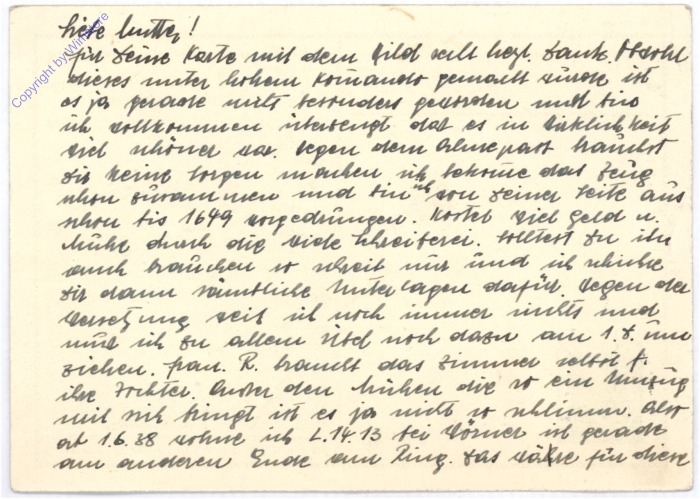 Liebe Mutti!
für Deine Karte mit dem Bild sehr hezl. Dank. Obwohl
dieses unter hohem Komando gemacht wurde ist
es ja gerade nicht besonders geworden und bin
ich vollkommen überzeugt daß es in Wirklichkeit
viel schöner war. Wegen dem Ahnepass brauchst
Dir keine Sorgen machen ich bekome das Zeug
schon zusammen und bin ich von Deiner Seite aus
schon bis 1649 vorgedrungen. Kostet viel Geld u.
Mühe durch die viele Schreiberei. Solltest Du ihn
auch brauchen so schreib mir und ich schicke
Dir dann sämtliche Unterlagen dafür. Wegen der
Versetzung weis ich noch immer nichts und
muß ich zu allem Übel noch dazu am 1.6. um
ziehen. Frau R. braucht das Zimmer selbst f.
ihre Tochter. Außer den Mühen die so ein Umzug
mit sich bringt ist es ja nicht so schlimm. Also
ab 1.6.38 wohne ich L.14.13 bei Körner ist gerade
am anderen Ende vom Ring. Das wäre für diese
Copyright by Winstore